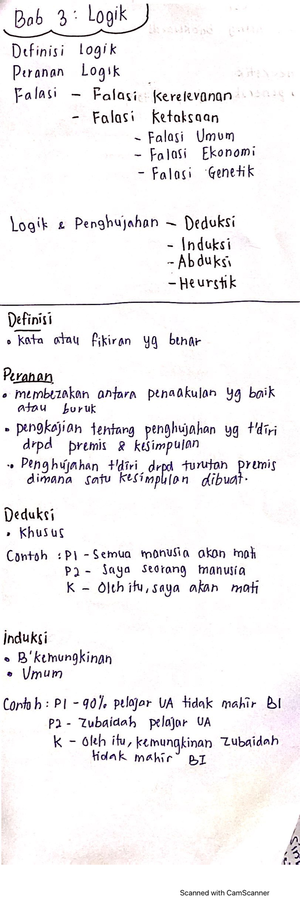 Bab 3 : Logik
Definisi Logik
Peranan Logik
Falasi - Falasi Kerelevanan
- Falasi Ketaksaan
- Falasi Umum
- Falasi Ekonomi
- Falasi Genetik
Logik & Penghujahan - Deduksi
- Induksi
- Abduksi
- Heurstik
Definisi
• kata atau fikiran yg benar
Peranan
• membezakan antara penaakulan yg baik
atau buruk
• pengkajian tentang penghujahan yg t'diri
drpd premis & kesimpulan
• Penghujahan t'diri drpd turutan premis
dimana satu kesimpulan dibuat.
Deduksi
• Khusus
Contoh : P1 - Semua manusia akan mati
P2 - Saya seorang manusia
K - Oleh itu, saya akan mati
induksi
• B'kemungkinan
• Umum
Contoh : P1 - 90% pelajar UA tidak mahir BI
P2 - Zubaidah pelajar UA
K - Oleh itu, kemungkinan Zubaidah
tidak mahir BI
Scanned with CamScanner